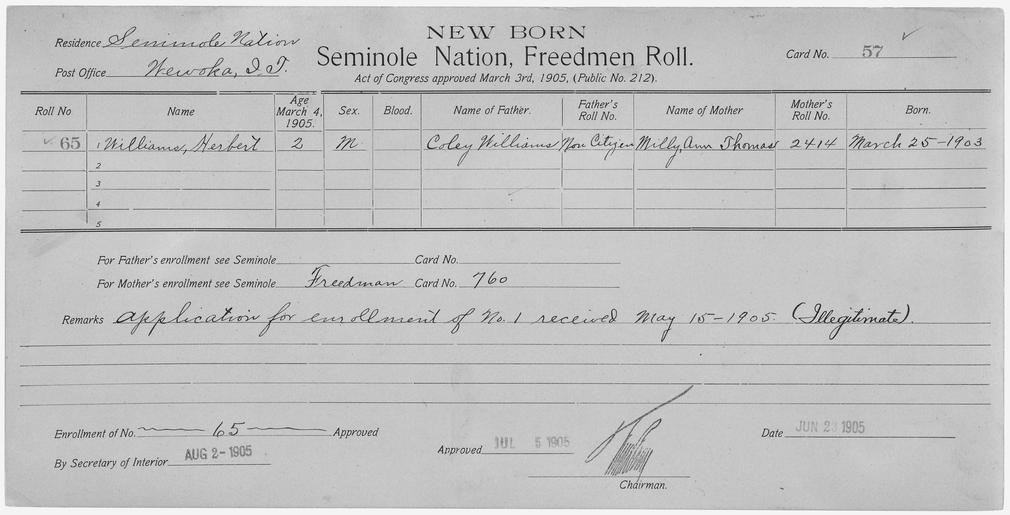 NEW BORN
Residence Seminole Nation Seminole Nation, Freedmen Roll. Card No. 57
Post Office Wewoka, I.T. Act of Congress approved March 3rd, 1905, (Public No. 212).
Roll No Name Age March 4, 1905. Sex. Blood. Name of Father. Father's Roll No. Name of Mother Mother's Roll No. Born.
65 1 Williams, Herbert 2 M Coley Williams Non Citizen Milly Ann Thomas 2414 March 25-1903
2
3
4
5
For Father's enrollment see Seminole Card No.
For Mother's enrollment see Seminole Freedman Card No. 760
Remarks Application for enrollment of No. 1 received May 15-1905. (Illegitimate).
Enrollment of No. 65 Approved
By Secretary of Interior AUG 2-1905
Approved JUL 5 1905
Chairman.
Date JUN 23 1905